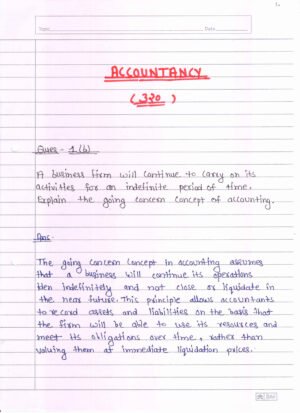 Topic
Date
ACCOUNTANCY
(320)
Ques - 1 (b)
A business firm will continue to carry on its
activities for an indefinite period of time.
Explain the going concern concept of accounting.
Ans-
The going concern concept in accounting assumes
that a business will continue its operations
then indefinitely and not close or liquidate in
the near future. This principle allows accountants
to record assets and liabilities on the basis that
the firm will be able to use its resources and
meet its obligations over time, rather than
valuing them at immediate liquidation prices.